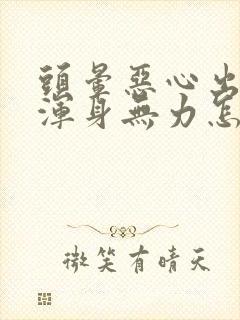 頭暈惡心出
渾身無力怎
微笑有晴天